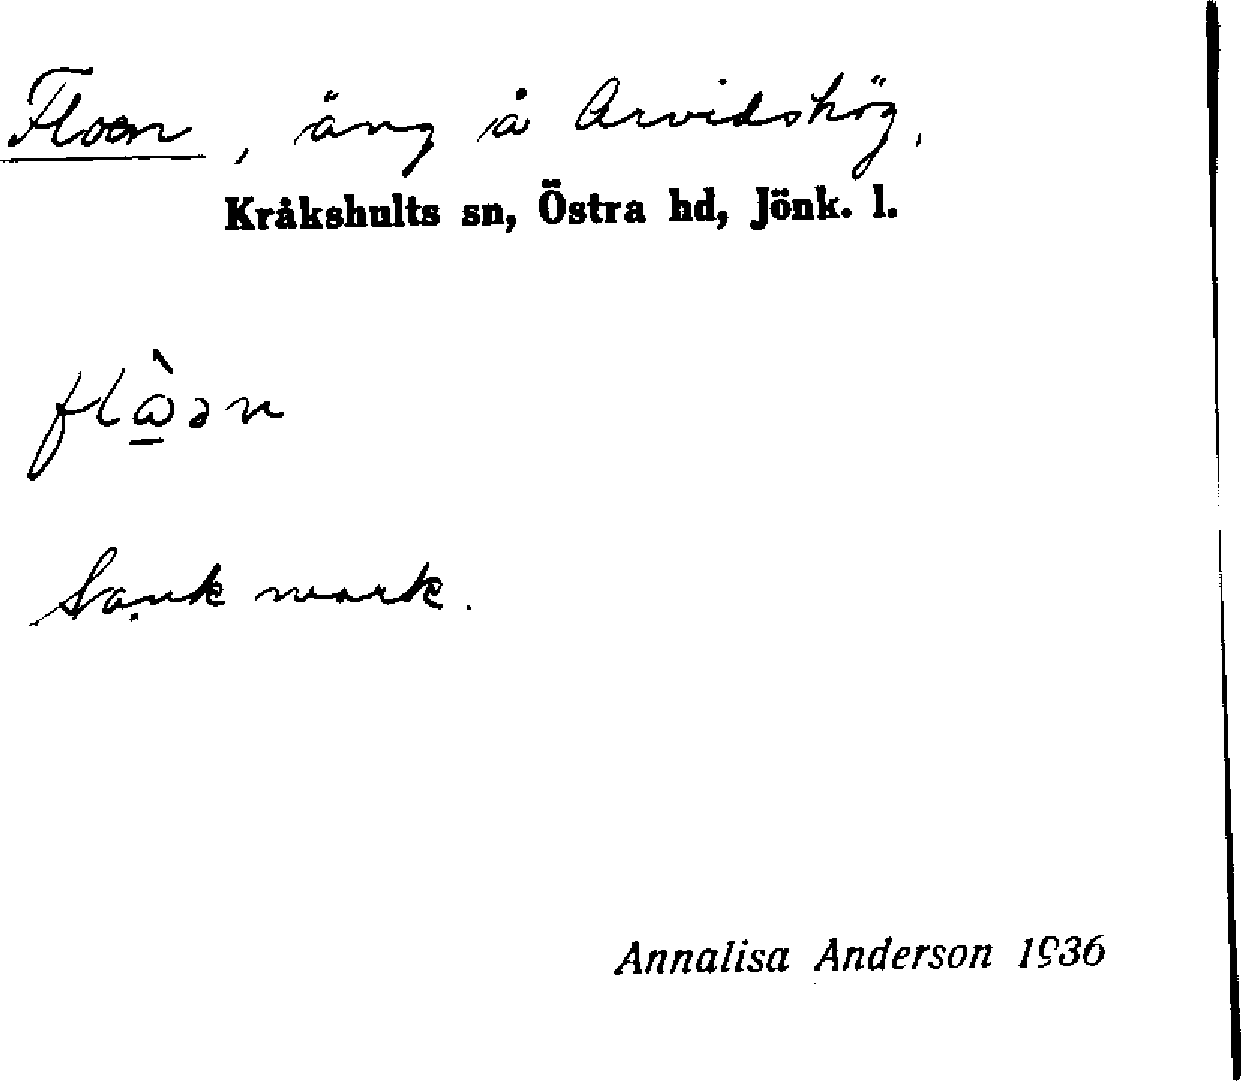 Floen, äng å Arvidshög,
Kråkshults sn, Östra hd, Jönk. l.
flὼ̲ən
Sank mark.
Annalisa Anderson 1936